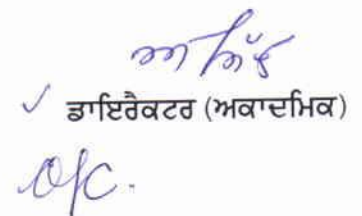 ✓ ਡਾਇਰੈਕਟਰ (ਅਕਾਦਮਿਕ)
O/C.